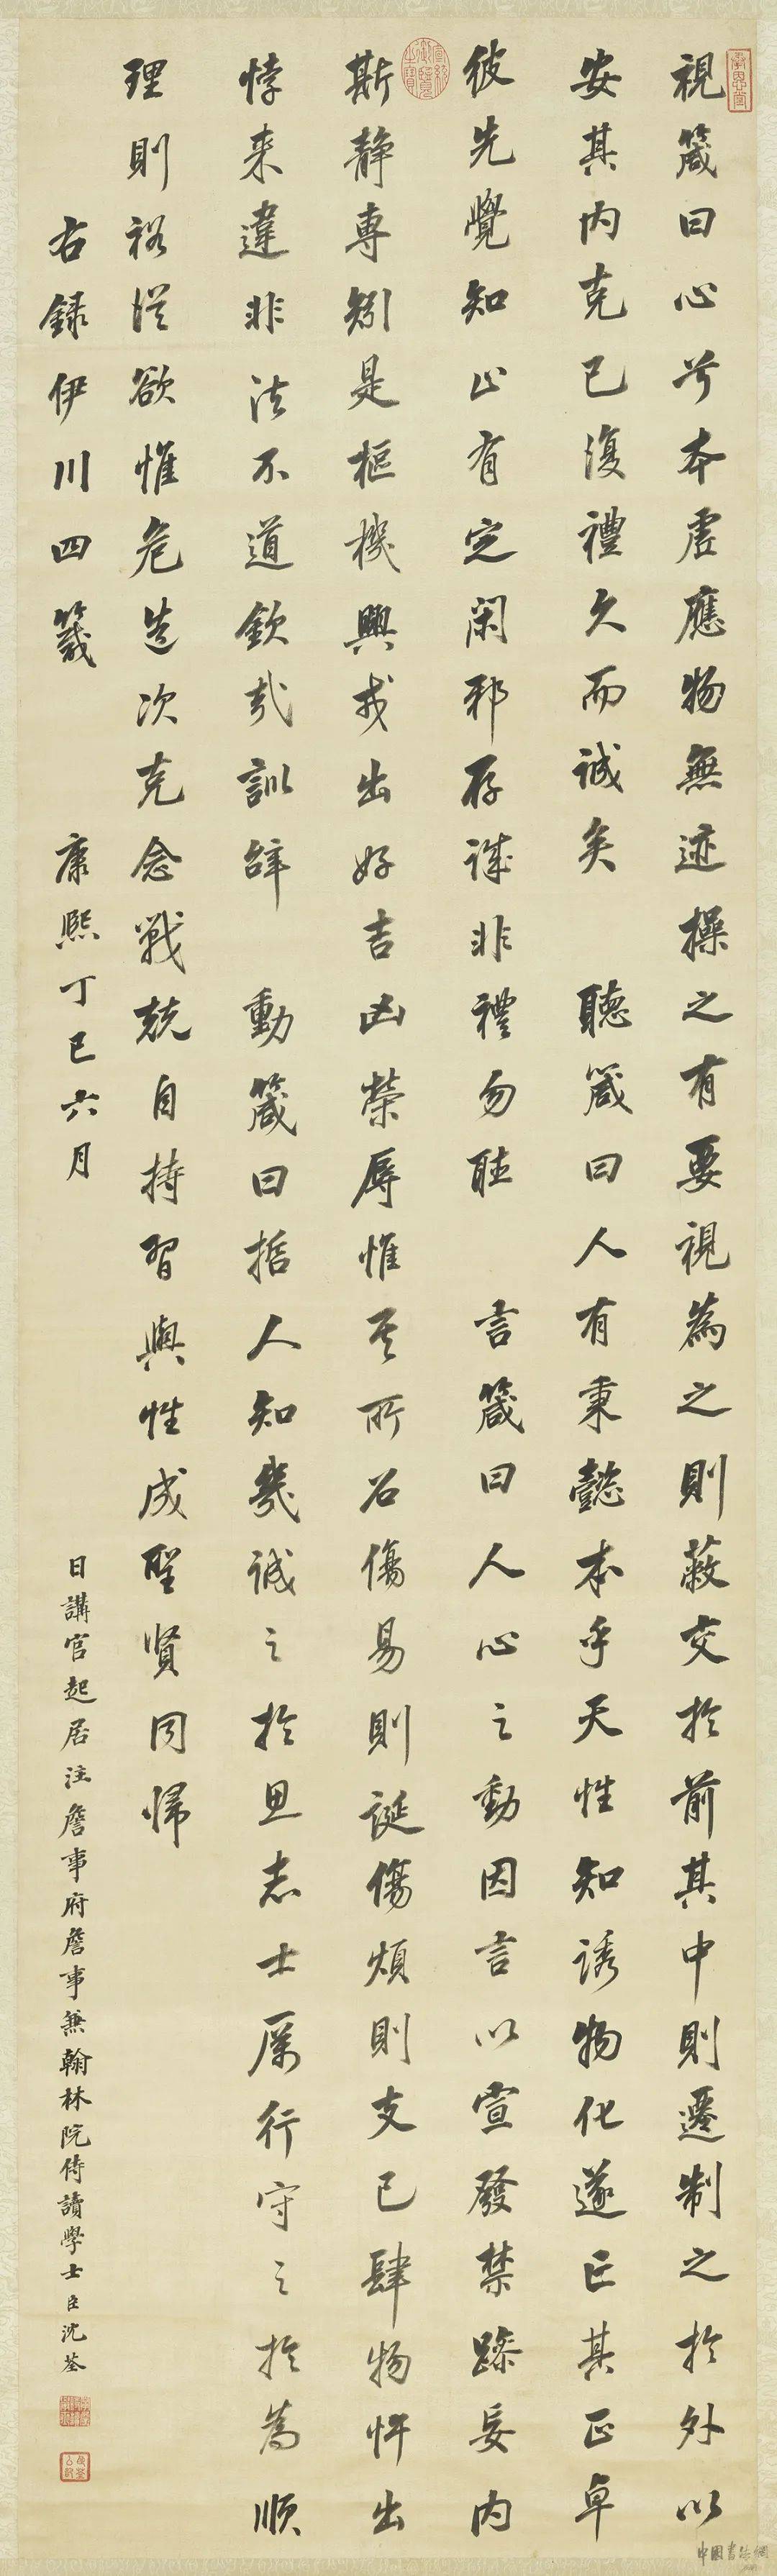 視箴曰心兮本虛應物無迹操之有要視為之則蔽交於前其中則遷制之於外以
安其内克己復禮久而誠矣 聽箴曰人有秉懿本乎天性知誘物化遂亡其正卓
彼先覺知止有定閑邪存誠非禮勿聽 言箴曰人心之動因言以宣發禁躁妄内
斯靜專矧是樞機興戎出好吉凶榮辱惟其所召傷易則誕傷煩則支己肆物忤出
悖来違非法不道欽哉訓辭 動箴曰哲人知幾誠之於思志士厲行守之於為順
理則裕從欲惟危造次克念戰兢自持習與性成聖賢同歸
右録伊川四箴 康熙丁巳六月
日講官起居注詹事府詹事兼翰林院侍讀學士臣沈荃
中國書法網